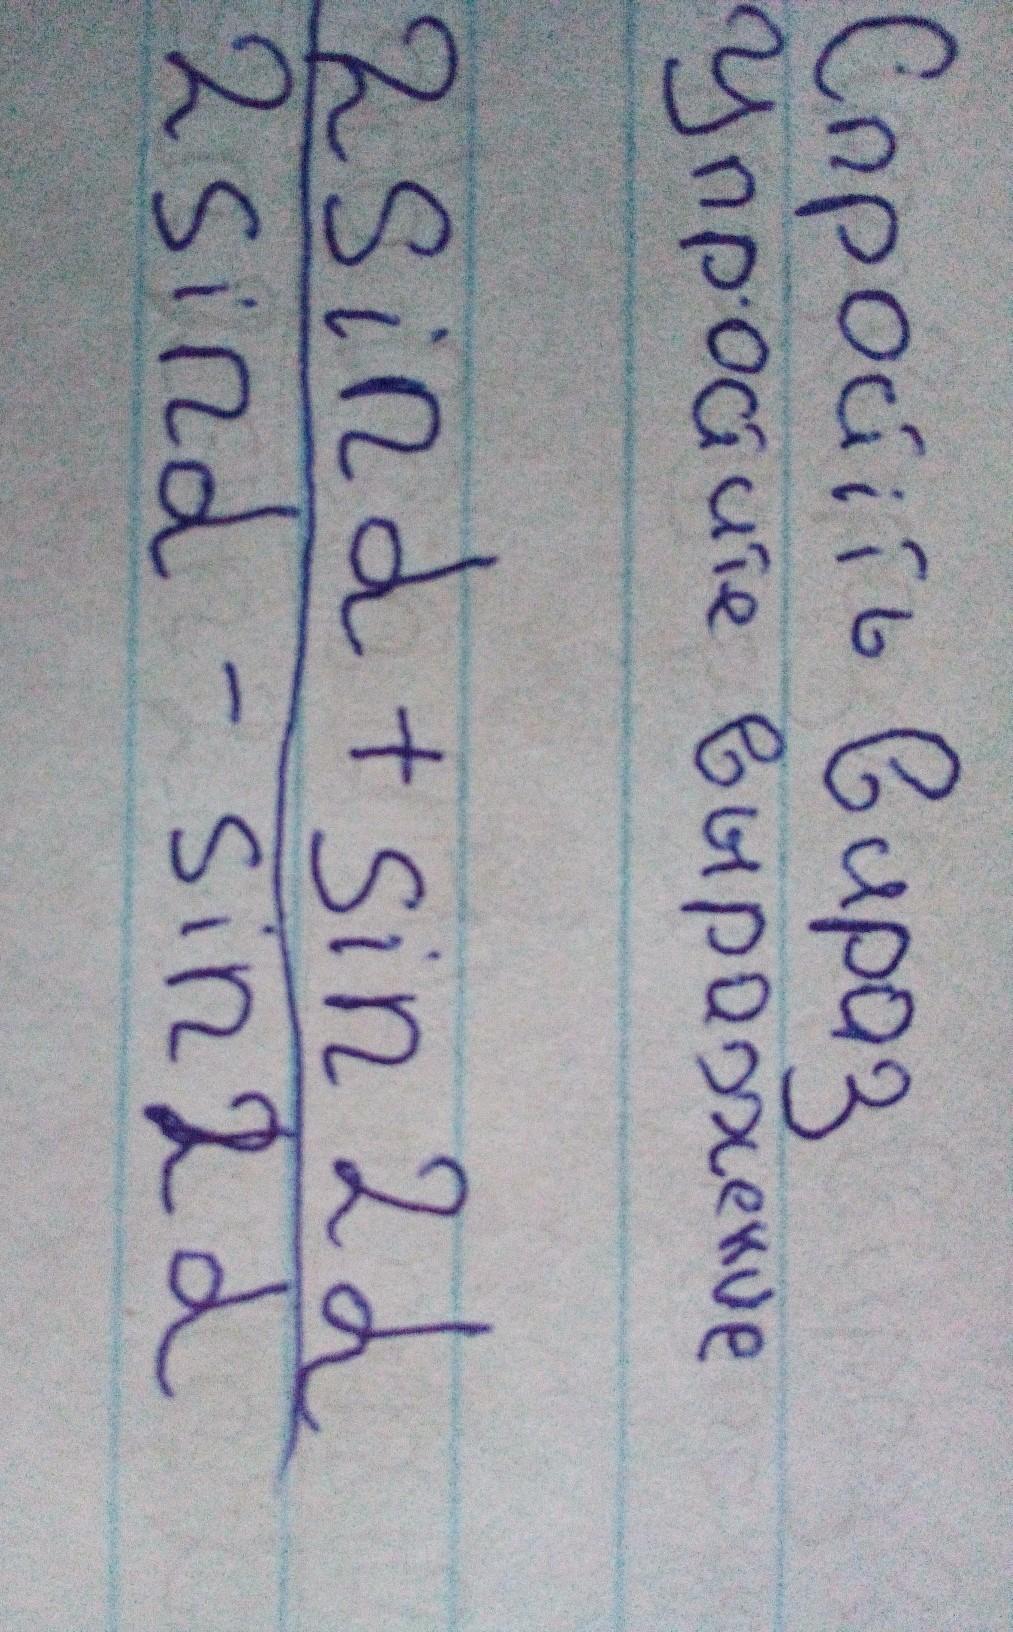 Спростіть вираз
Упростите выражение
2sinα + sin2α
2sinα - sin2α